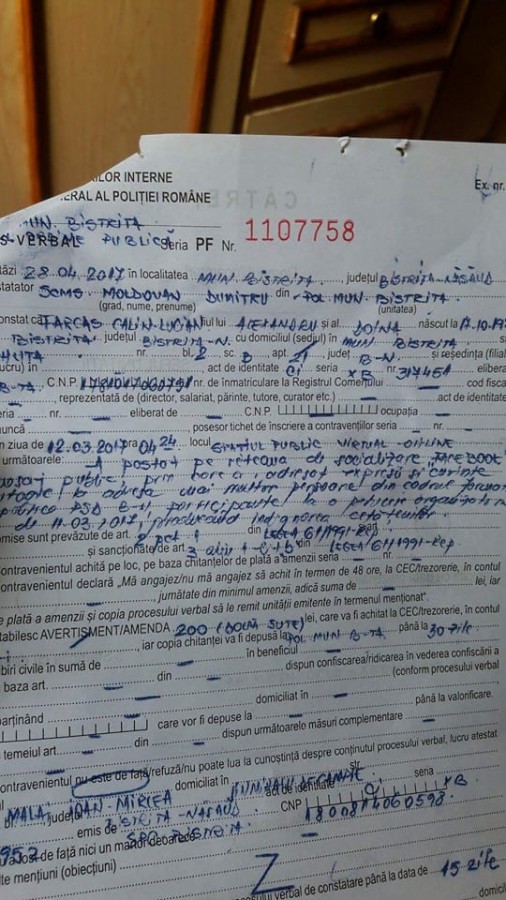 RILOR INTERNE
ERAL AL POLIȚIEI ROMÂNE
Ex. nr.
MUN. BISTRIȚA
S-VERBAL PUBLICĂ seria PF Nr. 1107758
tăzi 28.04.2017 în localitatea MUN. BISTRIȚA, județul BISTRIȚA-NĂSĂUD
statator SCMS MOLDOVAN DUMITRU din POL. MUN. BISTRIȚA
(grad, nume, prenume) (unitatea)
onstat că TARCAȘ CĂLIN-LUCIAN fiul lui ALEXANDRU și al DOINA născut la 17.10.197
BISTRIȚA județul BISTRIȚA-N. cu domiciliul (sediul) în MUN. BISTRIȚA
nr. bl. 2 sc. B apt. 21 județ B-N și reședința (filial
lucru) în act de identitate Ci seria XB nr. 317451 elibera
C.N.P. nr. de înmatriculare la Registrul Comerțului cod fiscal
, reprezentată de (director, salariat, părinte, tutore, curator etc.) act de identitate
eria nr. eliberat de C.N.P. ocupația
muncă , posesor tichet de înscriere a contravențiilor seria nr.
n ziua de 12.03.2017 ora 04 24 locul SPAȚIUL PUBLIC VIRTUAL
următoarele: A postat pe rețeaua de socializare "FACEBOOK"
public, prin care a adresat expresii și cuvinte
la adresa mai multor persoane din cadrul
PSD B-N, participante la o organizat
de 11.03.2017, producând indignarea cetățenilor.
mise sunt prevăzute de art. 2 pct 1 din LEGEA 61/1991-Rep.
și sancționate de art. 3 alin 1 lit b din LEGEA 61/1991-Rep.
ontravenientul achită pe loc, pe baza chitanțelor de plată a amenzii seria nr.
ontravenientul declară „Mă angajez/nu mă angajez să achit în termen de 48 ore, la CEC/trezorerie, în contul
, jumătate din minimul amenzii, adică suma de lei, iar
e plată a amenzii și copia procesului verbal să le remit unității emitente în termenul menționat".
tabilesc AVERTISMENT/AMENDA 200 (DOUĂ SUTE) lei, care va fi achitat la CEC/trezorerie, în contul
, iar copia chitanței va fi depusă la POL MUN B-ȚA până la 30 zile
biri civile în sumă de în beneficiul
baza art. din dispun confiscarea/ridicarea în vederea confiscării a
(conform procesului verbal
parținând domiciliat în
care vor fi depuse la până la valorificare.
temeiul art. din dispun următoarele măsuri complementare
ontravenientul nu este de față/refuză/nu poate lua la cunoștință despre conținutul procesului verbal, lucru atestat
MALA IOAN-MIRCEA domiciliat în str.
bl. județul BISTRIȚA-NĂSĂUD act de identitate seria XB
emis de SPC BISTRIȚA CNP
a fost de față nici un martor deoarece
lte mențiuni (obiecțiuni)
verbal de constatare până la data de 15 zile
domicil